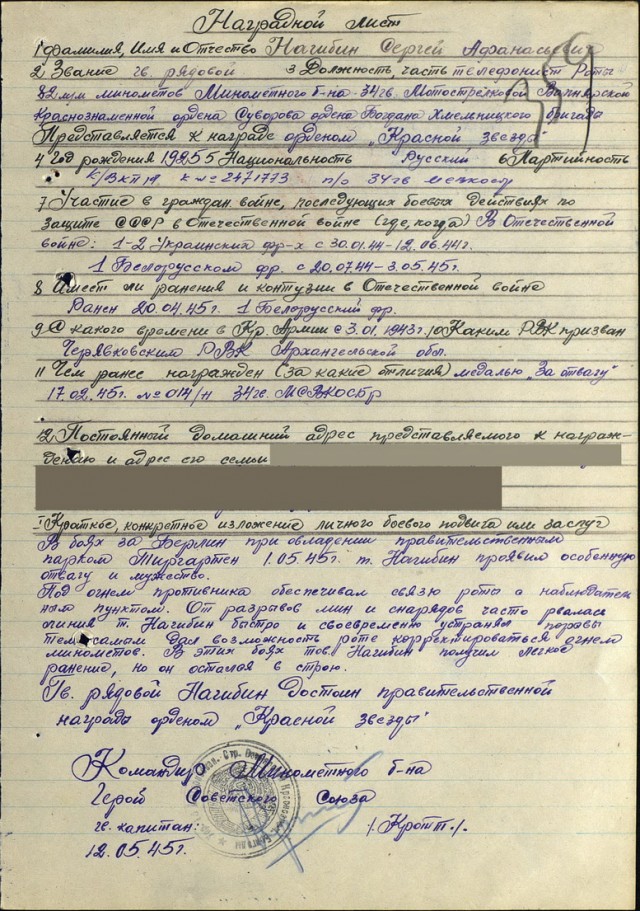 Наградной лист
1 Фамилия, Имя и Отчество Нагибин Сергей Афанасьевич
2, Звание гв. рядовой 3 Должность, часть телефонист Роты
82 м/м минометов Минометного б-на 34 гв Мотострелковой
Краснознаменной ордена Суворова ордена Богдана Хмельницкого бригады
Представляется к награде орденом „Красной звезды"
4 Год рождения 1925 5 Национальность Русский 6 Партийность
к/ВКП № 2471773 п/о 34 гв
7 Участие в граждан. войне, последующих боевых действиях по
защите СССР в Отечественной войне (где, когда) В Отечественной
войне: 1-2-Украинский фр-х с 30.01.44-12.06.44г.
1 Белорусском фр. с 20.07.44-3.05.45г.
8 Имеет ли ранения и контузии в Отечественной войне
Ранен 20.04.45г. 1 Белорусский фр.
9 С какого времени в Кр. Армии с 3.01.1943г. 10 Каким РВК призван
РВК Архангельской обл.
11 Чем ранее награжден (за какие отличия) медалью „За отвагу"
17.02.45г. №014/н 34 гв.
12 Постоянный домашний адрес представляемого к награж-
дению и адрес его семьи
I Краткое, конкретное изложение личного боевого подвига или заслуг
В боях за Берлин при овладении правительственным
парком Тиргартен 1.05.45г. т. Нагибин проявил особенную
отвагу и мужество.
Под огнем противника обеспечивал связью роты с наблюдатель
ным пунктом. От разрывов мин и снарядов часто рвалась
линия т. Нагибин быстро и своевременно устранял порывы
тем самым дал возможность роте корректироваться огнем
минометов. В этих боях тов. Нагибин получил легкое
ранение, но он остался в строю.
Гв. рядовой Нагибин Достоин правительственной
награды орденом „Красной звезды"
Командир Минометного б-на
Герой Советского Союза
гв. капитан: /. Кротт./.
12.05.45г.